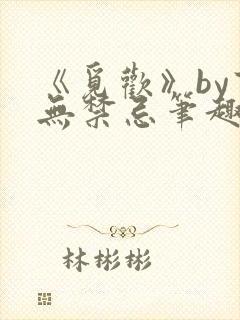 《覓歡》by
無禁忌筆趣
林彬彬